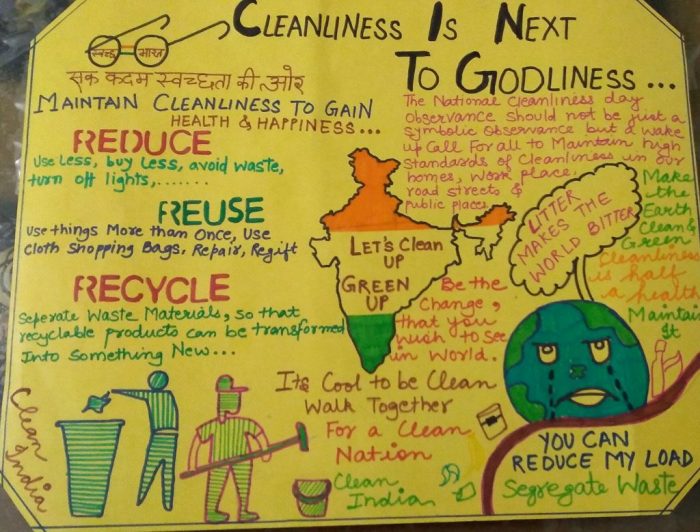 CLEANLINESS IS NEXT
TO GODLINESS...
स्वच्छ भारत
एक कदम स्वच्छता की ओर
MAINTAIN CLEANLINESS TO GAIN
HEALTH & HAPPINESS...
REDUCE
Use Less, buy Less, avoid waste,
turn off lights,.......
REUSE
Use things More than Once, Use
Cloth Shopping Bags, Repair, Regift
RECYCLE
Seperate Waste Materials, so that
recyclable products can be transformed
Into Something New...
The National Cleanliness day
Observance should not be just a
Symbolic Observance but a wake
up Call For all to Maintain high
Standards of Cleanliness in our
homes, work place,
road streets &
public places
LET'S Clean
UP
GREEN
UP
LITTER
MAKES THE
WORLD BITTER
Make
the
Earth
Clean &
Green
Cleanliness
is half
a health
Maintain
It
Be the
Change,
that you
Wish to See
in World.
Its Cool to be Clean
Walk Together
For a Clean
Nation
Clean
India
Clean
India
YOU CAN
REDUCE MY LOAD
Segregate Waste